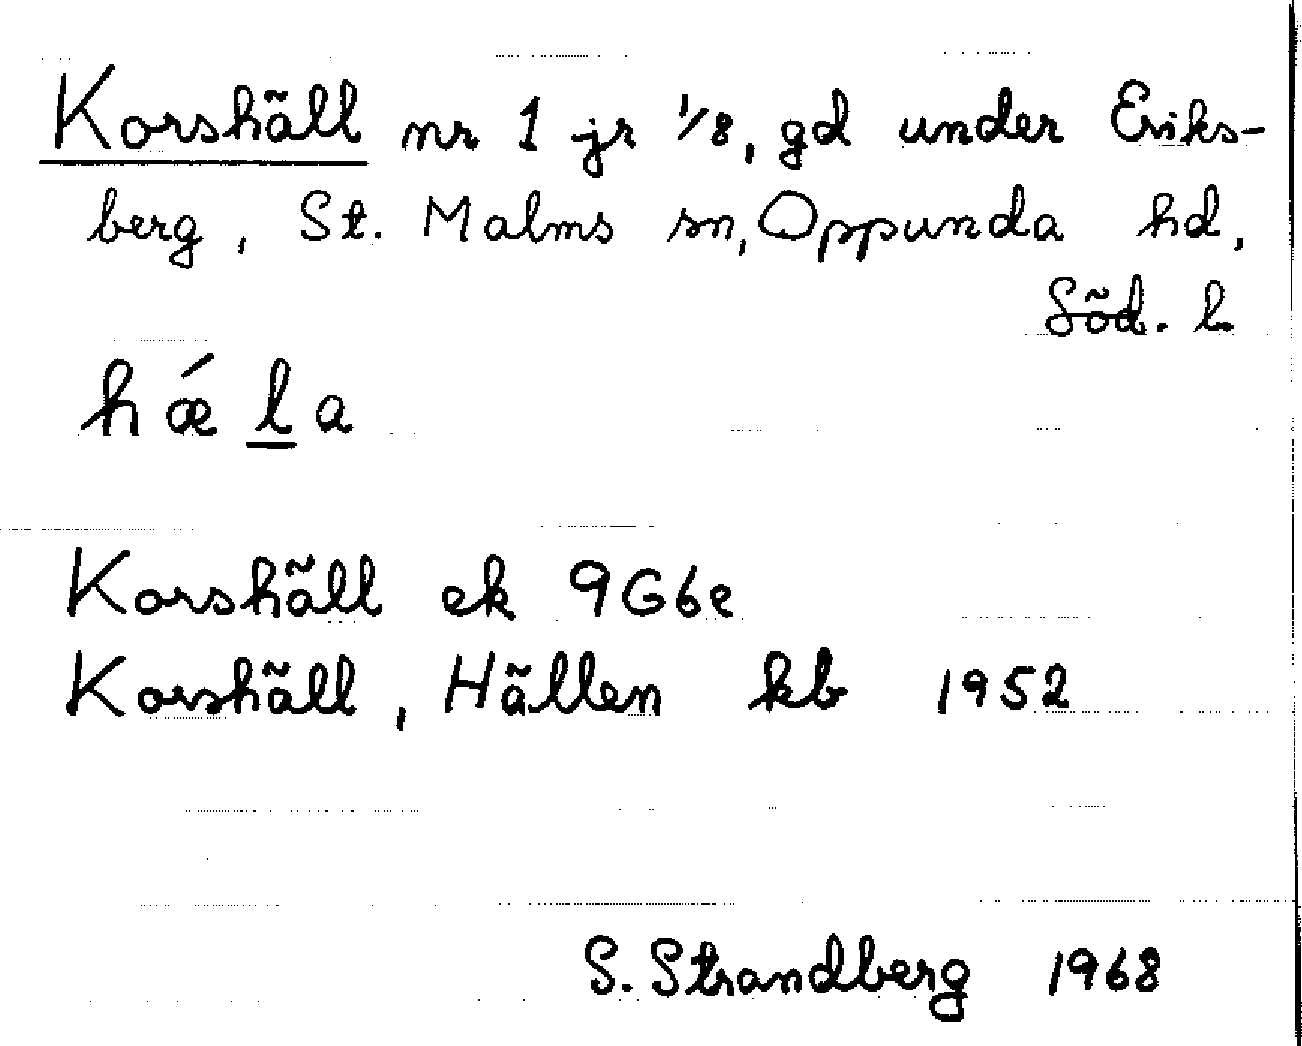 Korshäll nr 1 jr 1/8, gd under Eriks-
berg, St. Malms sn, Oppunda hd,
Söd. l.
hǽla
Korshäll ek 9G6e
Korshäll, Hällen kb 1952
S. Strandberg 1968